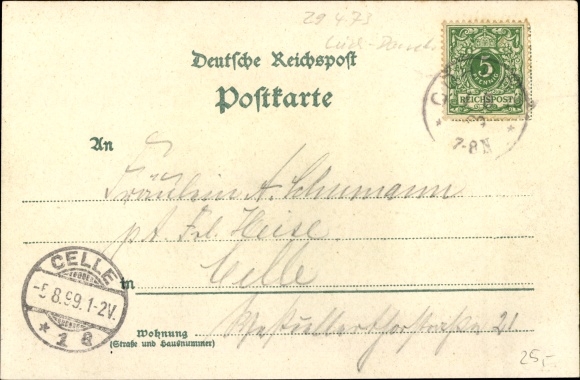 29 4.73
Deutsche Reichspost
Postkarte
5
REICHSPOST
7-8N
An
Fräulein A. Schumann
p. A. Frl. Heise
in Celle
CELLE
-5.8.99.1-2V.
* 1 a
Wohnung
(Straße und Hausnummer)
21
25,-